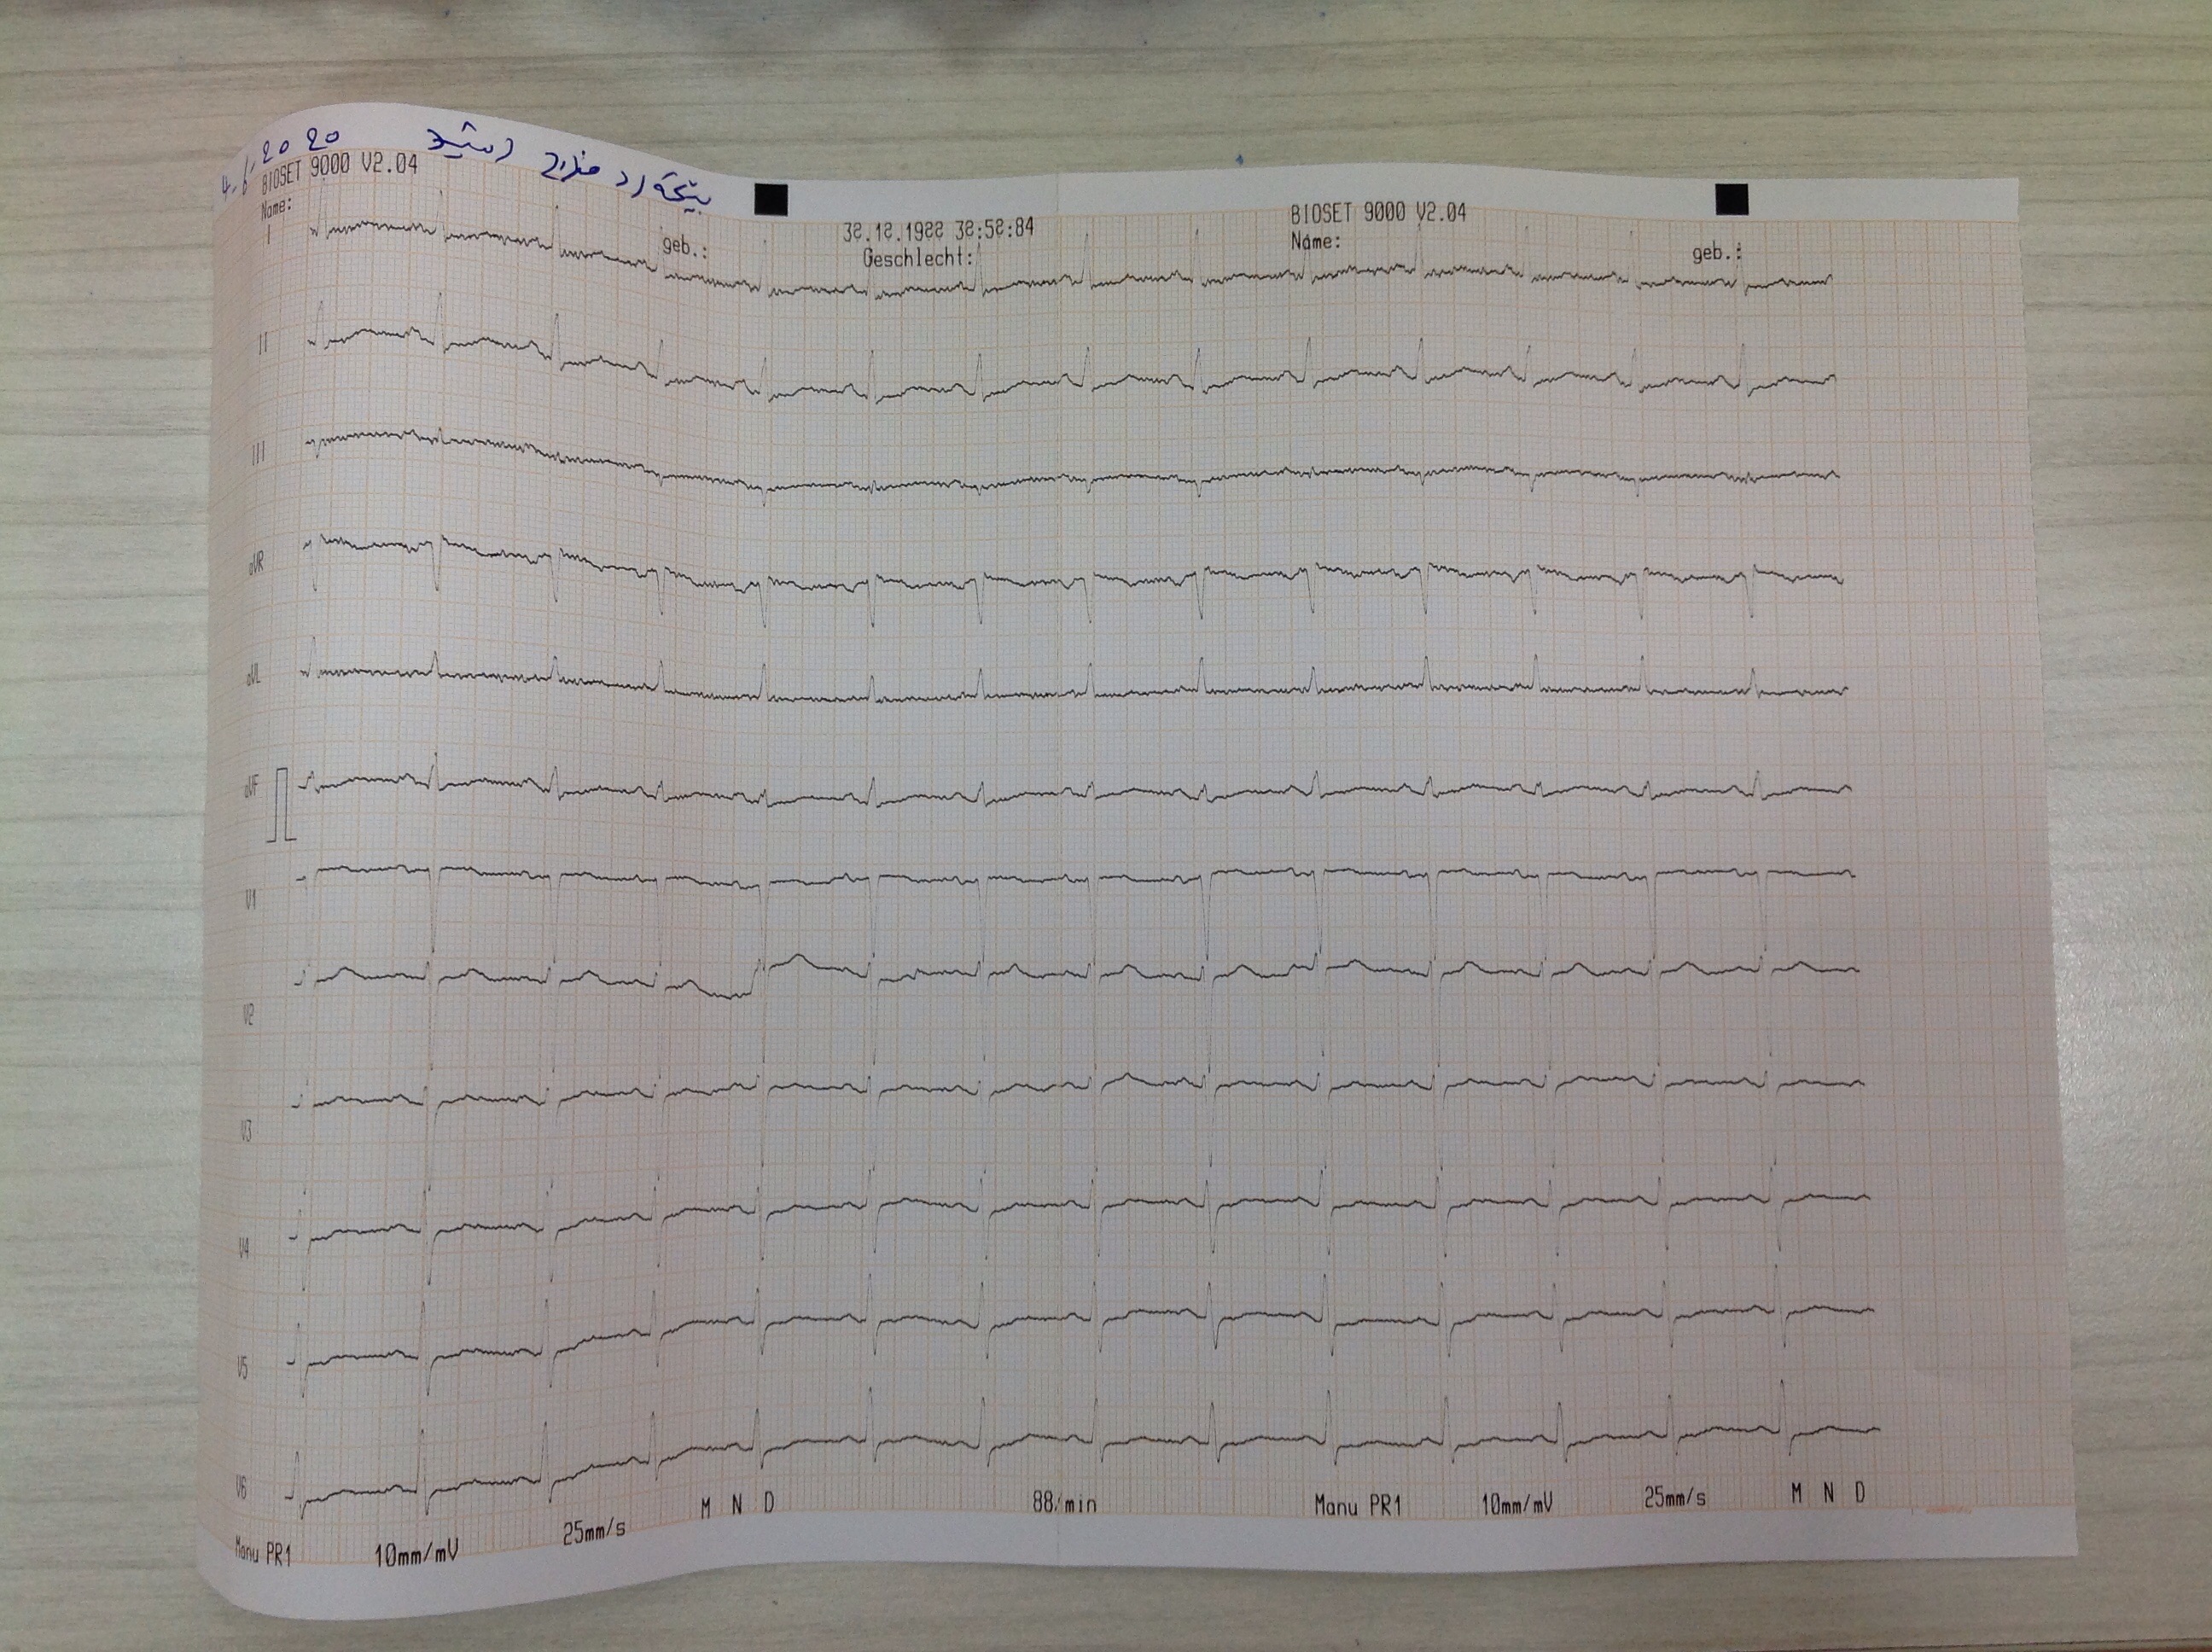 4.6.2020
BIOSET 9000 V2.04
Name:
geb.:
38.18.1988 38:58:84
Geschlecht:
BIOSET 9000 V2.04
Name:
geb.:
I
II
III
aVR
aVL
aVF
V1
V2
V3
V4
V5
V6
Manu PR1 10mm/mV 25mm/s M N D 88/min Manu PR1 10mm/mV 25mm/s M N D